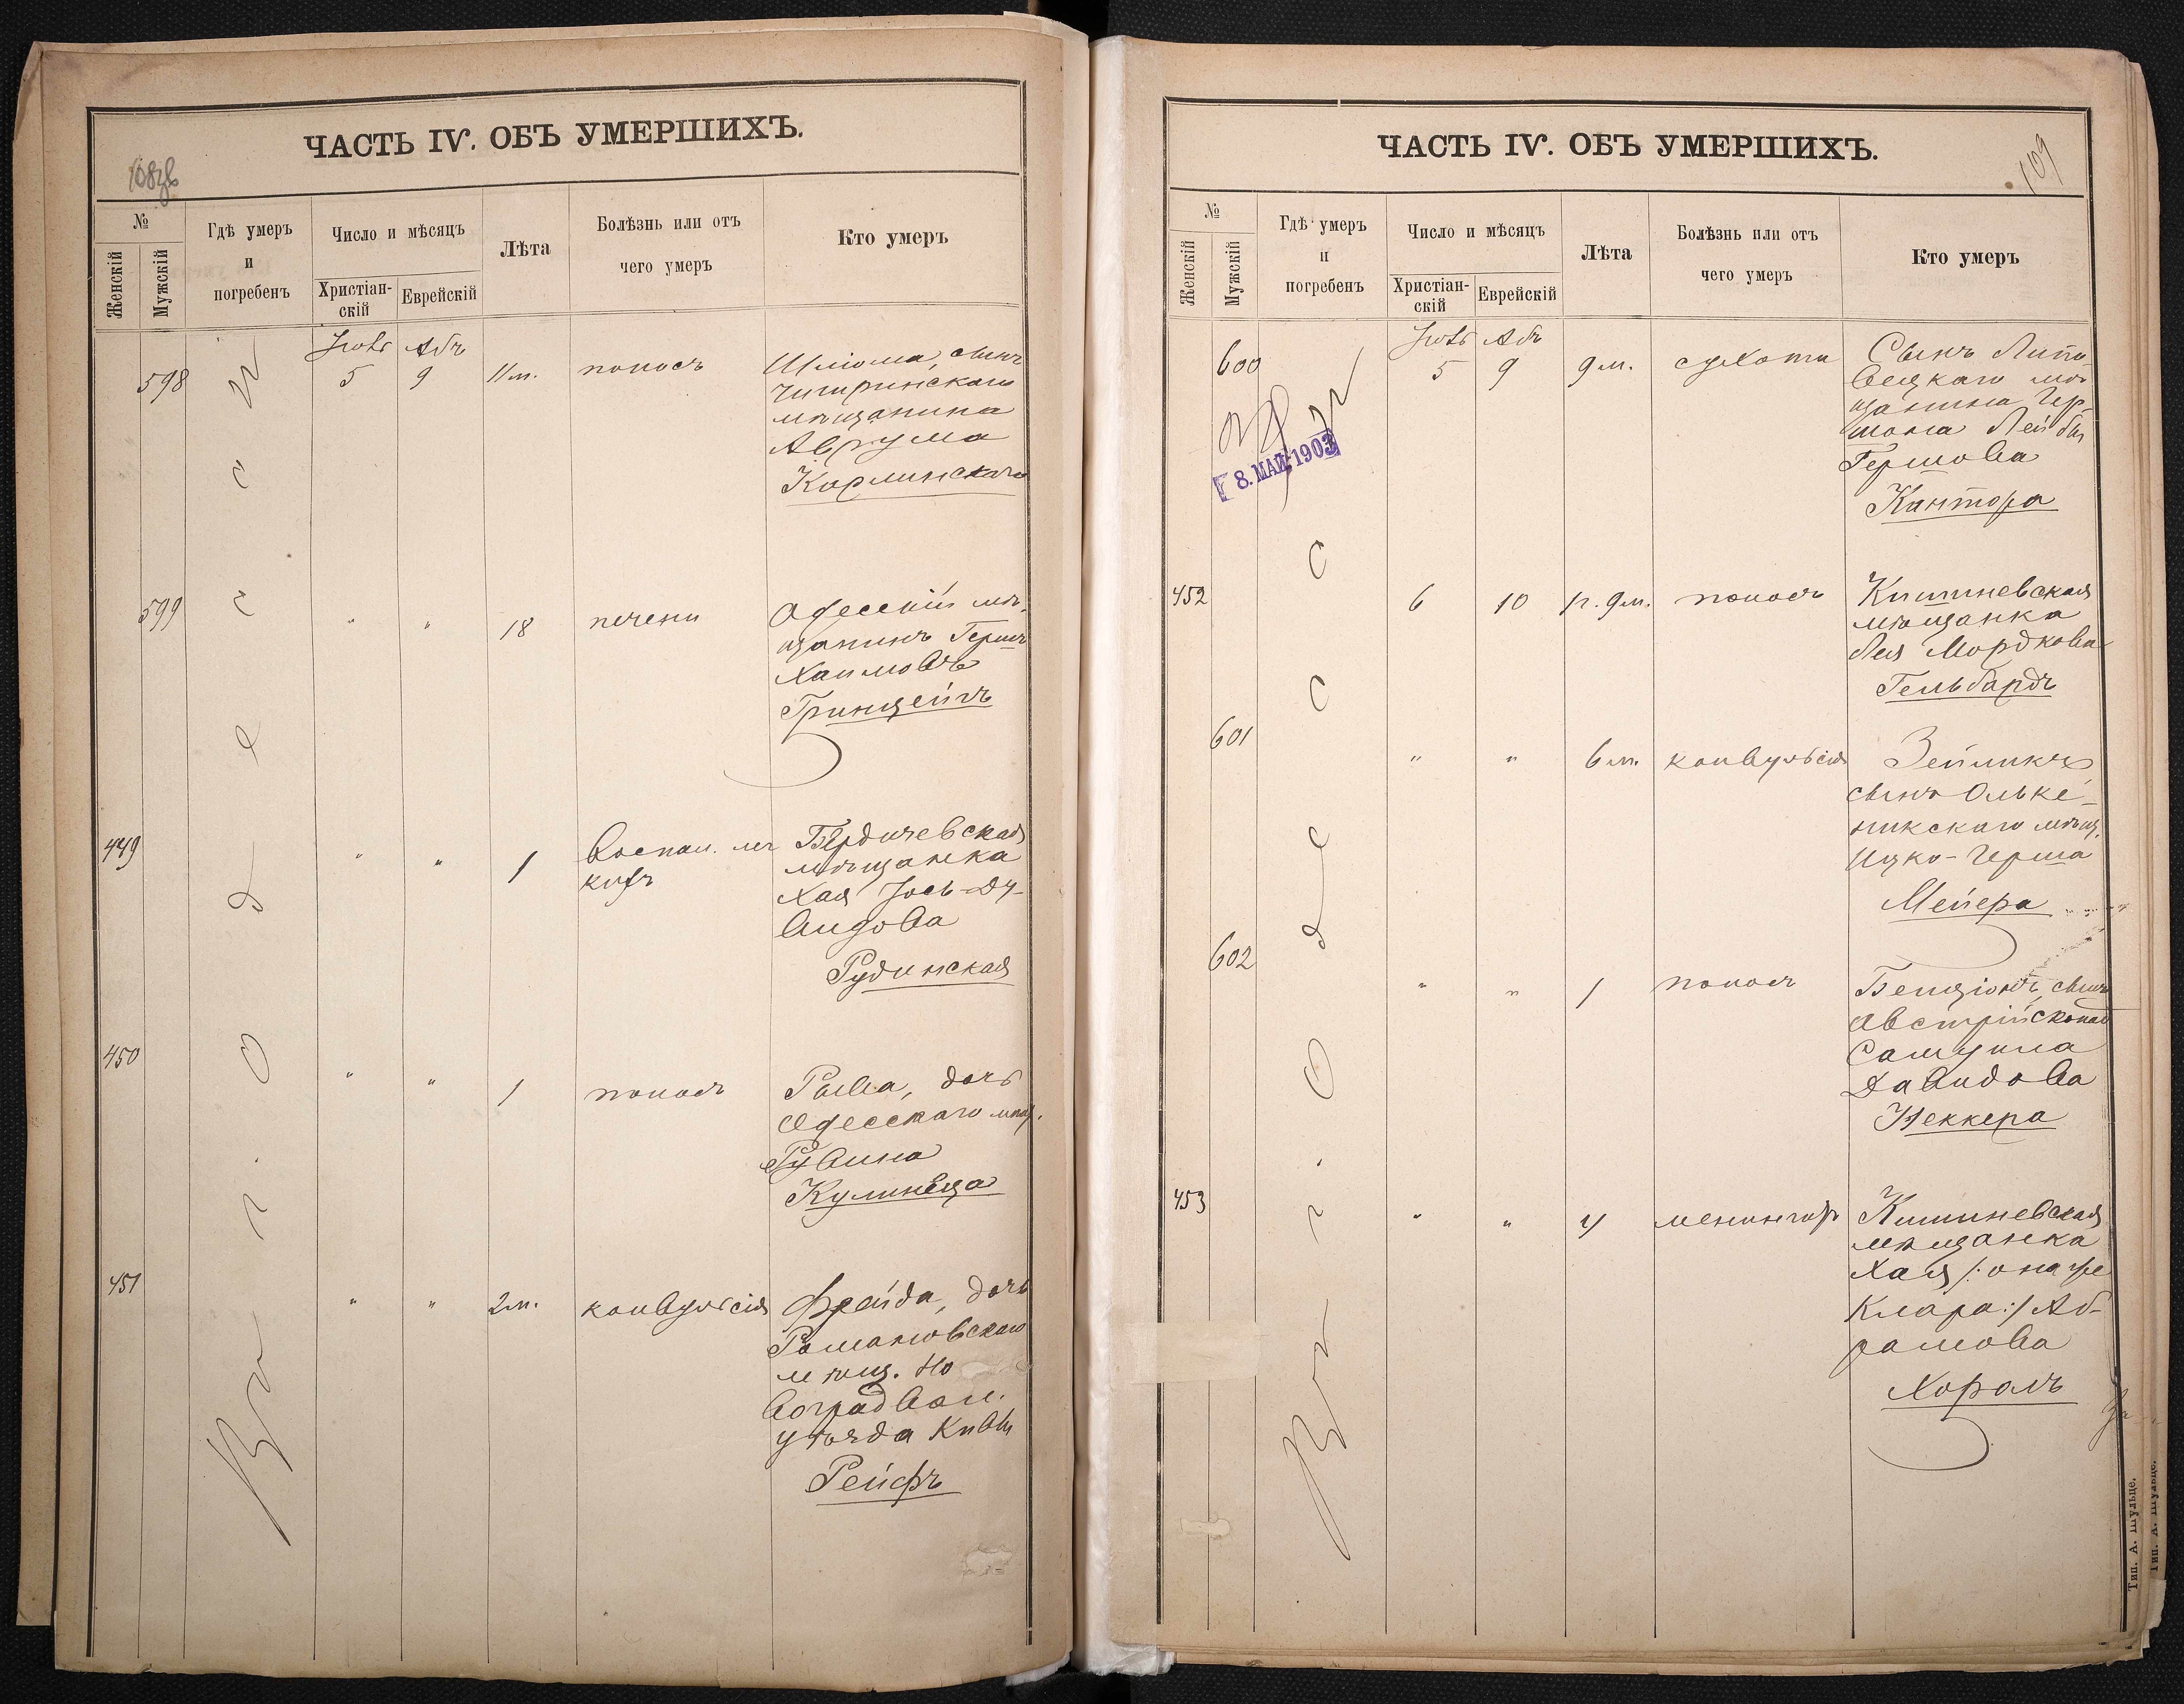 108
ЧАСТЬ IV. ОБЪ УМЕРШИХЪ.
№
Женскій
Мужскій
Гдѣ умеръ
и
погребенъ
Число и мѣсяцъ
Христіан-
скій
Еврейскій
Лѣта
Болѣзнь или отъ
чего умеръ
Кто умеръ
Въ г. Одессѣ
Іюль Абъ
598 5 9 11 м. поносъ
Шлiома, сынъ
Чигринскаго
мѣщанина
Аврума
Карлинскаго
599 " " 18 печени
Одесскій мѣ-
щанинъ Гершъ
Хаимовъ
Гринцейгъ
449 " " 1 Воспал. лег
кихъ
Бердичевская
мѣщанка
Хая Іось-Ду-
видова
Рудинская
450 " " 1 поносъ
Рыва, дочь
Одесскаго мѣщ.
Рувина
Кулинеца
451 " " 2 м. конвульсія
Фрейда, дочь
Романовскаго
мѣщ. Но
воградвол.
уѣзда Кивы
Рейфъ
ЧАСТЬ IV. ОБЪ УМЕРШИХЪ.
109
№
Женскій
Мужскій
Гдѣ умеръ
и
погребенъ
Число и мѣсяцъ
Христіан-
скій
Еврейскій
Лѣта
Болѣзнь или отъ
чего умеръ
Кто умеръ
Въ г. Одессѣ
8. МАЙ 1903
Іюль Абъ
600 5 9 9 м. сухоты
Сынъ Липо-
вецкаго мѣ-
щанина Гер-
шона Лейбы
Гершова
Кантора
452 6 10 1 г. 9 м. поносъ
Кишиневская
мѣщанка
Лея Мордкова
Гельбардъ
601 " " 6 м. конвульсія
Зейликъ,
сынъ Ольке-
никскаго мѣщ.
Ицко-Герша
Мейера
602 " " 1 поносъ
Бенціонъ, сынъ
Австрійскопод
Самуила
Давидова
Неккера
453 " " 4 менингитъ
Кишиневская
мѣщанка
Хая /: она же
Клара :/ Аб-
рамова
Хораль
Тип. А. Шульце.
Тип. А. Шульце.